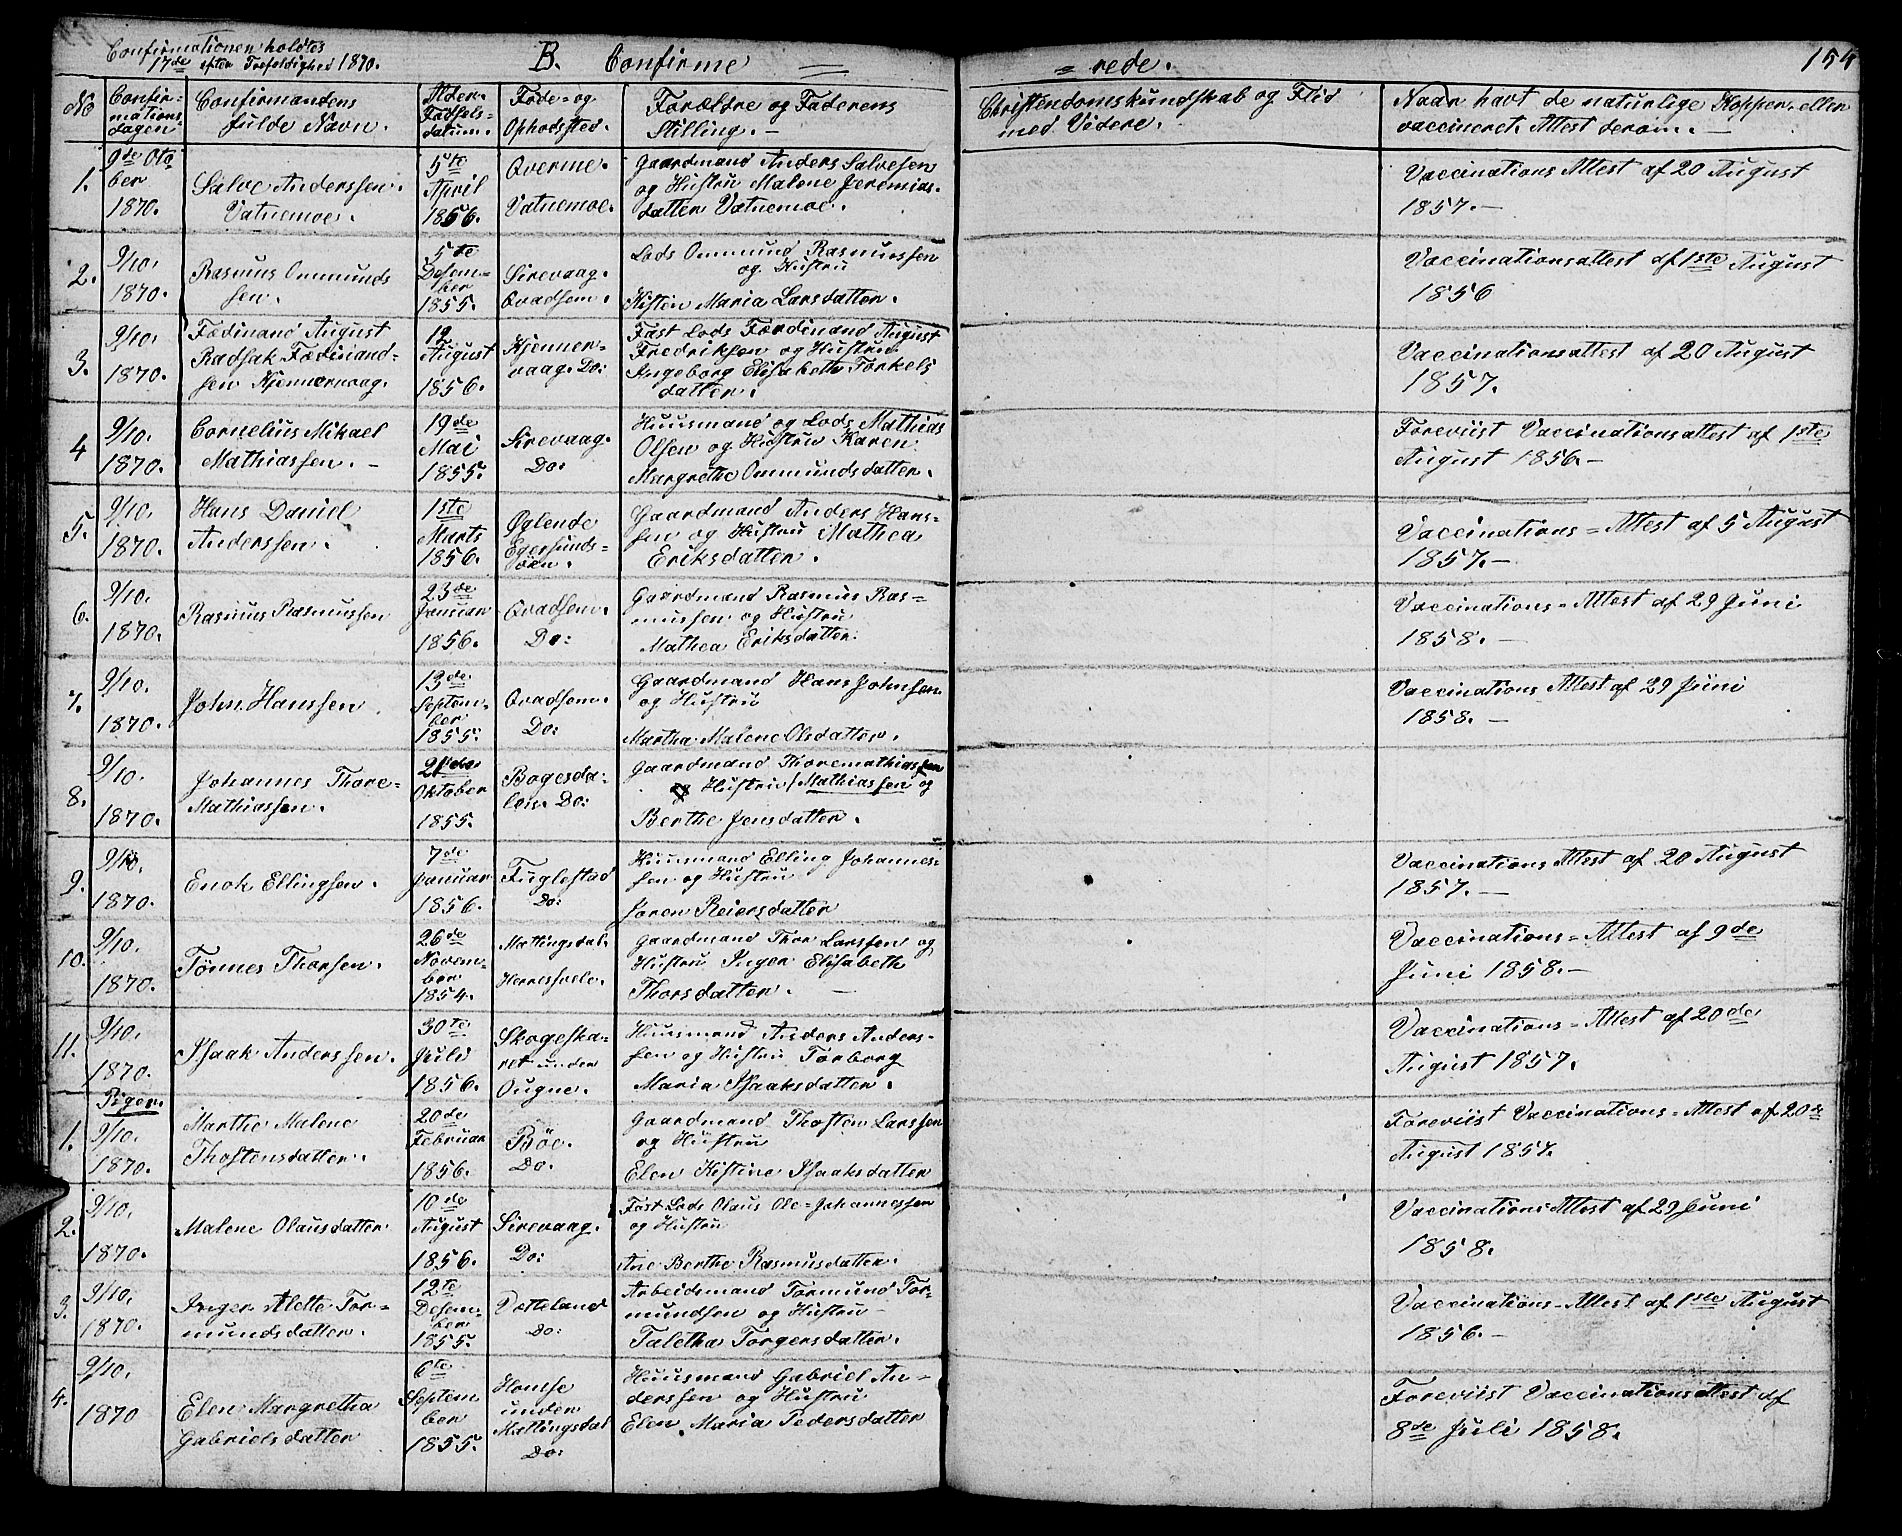 Confirmationen holdtes
17de efter Trefoldighed 1870.
B. Confirme =
= rede.
154
No
Confir-
mations
dagen
Confirmandens
fulde Navn.
Alder.
Fødsels-
datum.
Føde- og
Opholdsted.
Forældre og Faderens
Stilling. -
Christendomskundskab og Flid
med Videre.
Naar havt de naturlige Kopper eller
vaccineret. Attest derom. -
1.
9de Oto
ber
1870.
Salve Anderssen
Vatnemoe.
5te
April
1856.
Qverme.
Vatnemoe.
Gaardmand Anders Salvesen
og Hustru Malene Jeremias-
datter Vatnemoe.
Vaccinations Attest af 20 August
1857. -
2.
9/10.
1870.
Rasmus Ommunds
sen.
5te
Desem-
ber
1855.
Sirevaag.
Qvadsem.
Lods Ommund Rasmussen
og Hustru
Kisten Maria Larsdatter.
Vaccinationsattest af 1ste August
1856
3.
9/10.
1870.
Fædinand August
Radsak Fædinand-
sen Kjennervaag.
12
August
1856.
Kjenner-
vaag. Do:
Fast Lods Færdinand August
Fredriksen og Hustru
Angeborg Elisabeth Torkels
datter.
Vaccinationsattest af 20 August
1857.
4
9/10.
1870.
Cornelius Mikael
Mathiassen. -
19de
Mai
1855.
Sirevaag.
Do:
Huusmand og Lods Mathias
Olsen og Hustru Karen
Margrethe Ommundsdatter.
Foreviist Vaccinationsattest af 1ste
August 1856. -
5.
9/10.
1870.
Hans Daniel
Anderssen.
1ste
Marts
1856.
Øglende
Egersunds-
Gaardmand Anders Hans-
sen og Hustru Mathea
Eriksdatter.
Vaccinations = Attest af 5 August
1857. -
6.
9/10.
1870.
Rasmus Rasmussen
23de
Januar
1856.
Qvadsem.
Do:
Gaardmand Rasmus Ras=
mussen og Hustru
Mathea Eriksdatter.
Vaccinations = Attest af 29 Juni
1858. -
7.
9/10.
1870.
John. Hanssen.
13de
Septem-
ber
1855.
Qvadsem.
Do:
Gaardmand Hans Johnsen
og Hustru
Martha Malene Olsdatter.
Vaccinations Attest af 29 Juni
1858. -
8.
9/10
1870.
Johannes Thore-
Mathiassen.
21de
Oktober
1855.
Bogesda-
len. Do:
Gaardmand Thoremathiassen
og Hustru / Mathiassen og
Berthe Jensdatter.
9.
9/10.
1870.
Enok Ellingsen.
7de
Januar
1856.
Fuglestad
Do:
Huusmand Elling Johannes-
sen og Hustru
Joren Reiersdatter
Vaccinations Attest af 20 August
1857. -
10.
9/10.
1870.
Tønnes Thorsen.
26de
Novem-
ber
1854.
Matlingsdal.
Gaardmand Thor Larssen og
Hustru Inger Elisabeth
Thorsdatter. -
Vaccinations = Attest af 9de
Juni 1858. -
11.
9/10.
1870.
Isaak Anderssen.
30te
Juli
1856.
Skogeska-
ret under
Ougne.
Huusmand Anders Anders-
sen og Hustru Torborg
Maria Isaaksdatter.
Vaccinations = Attest af 20de
August 1857.
Piger.
1.
9/10.
1870.
Marthe Malene
Thostensdatter.
20de
Februar
1856.
Bøe.
Do.
Gaardmand Thosten Larssen
og Hustru
Elen Kistine Isaaksdatter
Foreviist Vaccinations = Attest af 20de
August 1857.
2.
9/10.
1870.
Malene Olausdatter
10de
August
1856.
Sirevaag.
Do:
Fast Lods Olaus Ole-Johannessen
og Hustru
Ane Berthe Rasmusdatter.
Vaccinations-Attest af 29 Juni
1858.
3.
9/10.
1870.
Inger Alette Tor-
mundsdatter.
12te
Desem-
ber
1855.
Vetteland
Do:
Arbeidsmand Tormund Tor-
mundsen og Hustru -
Taletha Torgersdatter.
Vaccinations-Attest af 1ste August
1856. -
4.
9/10.
1870
Elen Margretha
Gabrielsdatter
6te
Septem
ber
1855.
Homse
under
Matlingsdal
Do:
Huusmand Gabriel An-
derssen og Hustru
Elen. Maria Pedersdatter
Foreviist Vaccinationsattest af
8de Juli 1858.